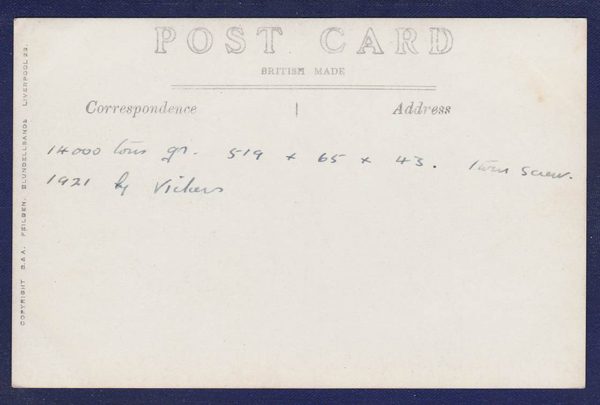 POST CARD
BRITISH MADE
Correspondence
Address
14000 tons gr. 519 x 65 x 43. Twin Screw.
1921 by Vickers
COPYRIGHT B.& A. FEILDEN, BLUNDELLSANDS LIVERPOOL 23.